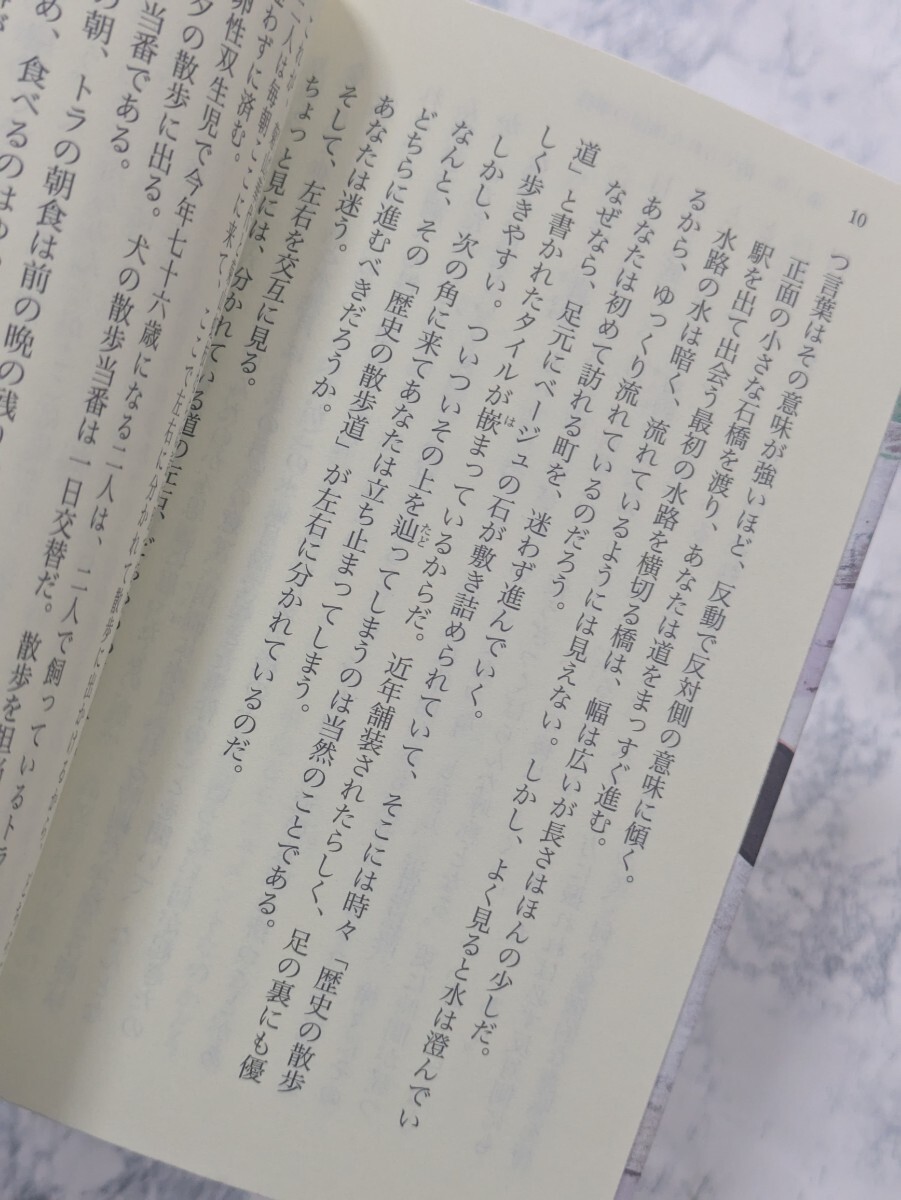 10
つ言葉はその意味が強いほど、反動で反対側の意味に傾く。
正面の小さな石橋を渡り、あなたは道をまっすぐ進む。
駅を出て出会う最初の水路を横切る橋は、幅は広いが長さはほんの少しだ。
水路の水は暗く、流れているようには見えない。しかし、よく見ると水は澄んでい
るから、ゆっくり流れているのだろう。
あなたは初めて訪れる町を、迷わず進んでいく。
なぜなら、足元にベージュの石が敷き詰められていて、そこには時々「歴史の散歩
道」と書かれたタイルが嵌まっているからだ。近年舗装されたらしく、足の裏にも優
しく歩きやすい。ついついその上を辿ってしまうのは当然のことである。
しかし、次の角に来てあなたは立ち止まってしまう。
なんと、その「歴史の散歩道」が左右に分かれているのだ。
どちらに進むべきだろうか。
あなたは迷う。
そして、左右を交互に見る。
ちょっと見には、分かれている道の左右、
二人は毎朝ここに来て、ここで左右に分かれて散歩に出かける
わずに済む。
卵性双生児で今年七十六歳になる二人は、二人で飼っているトラ
夕の散歩に出る。犬の散歩当番は一日交替だ。散歩を担当
当番である。
の朝、トラの朝食は前の晩の残り
め、食べるのは